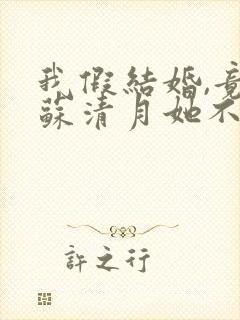 我假結婚,竟
蘇清月她不
許之行